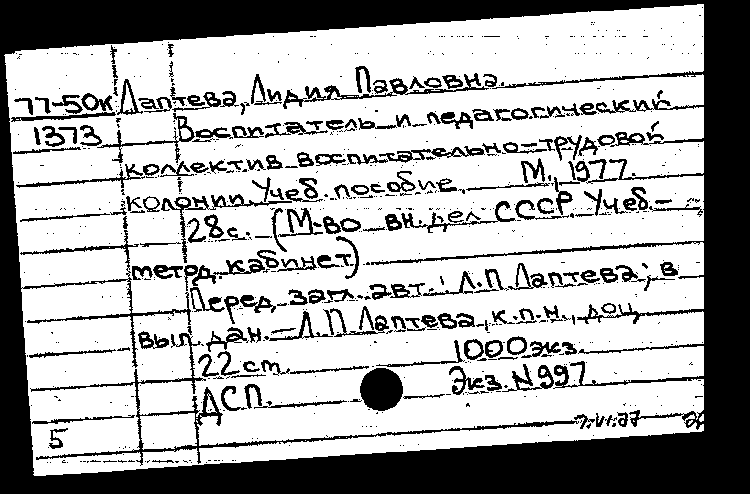 77-50К Лаптева, Лидия Павловна.
1373 Воспитатель и педагогический
коллектив воспитательно-трудовой
колонии. Учеб. пособие. М., 1977.
28с. (М-во вн. дел СССР Учеб.-
метод. кабинет)
Перед загл. авт.: Л.П. Лаптева; в
вып. дан. - Л.П. Лаптева, к.п.н., доц.
22 ст. 1000 экз.
ДСП. Экз. N 997.
5